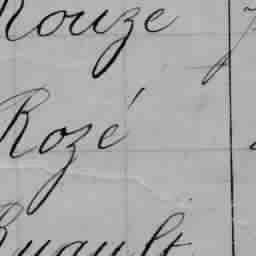 Rouze
Rozé
Ruault